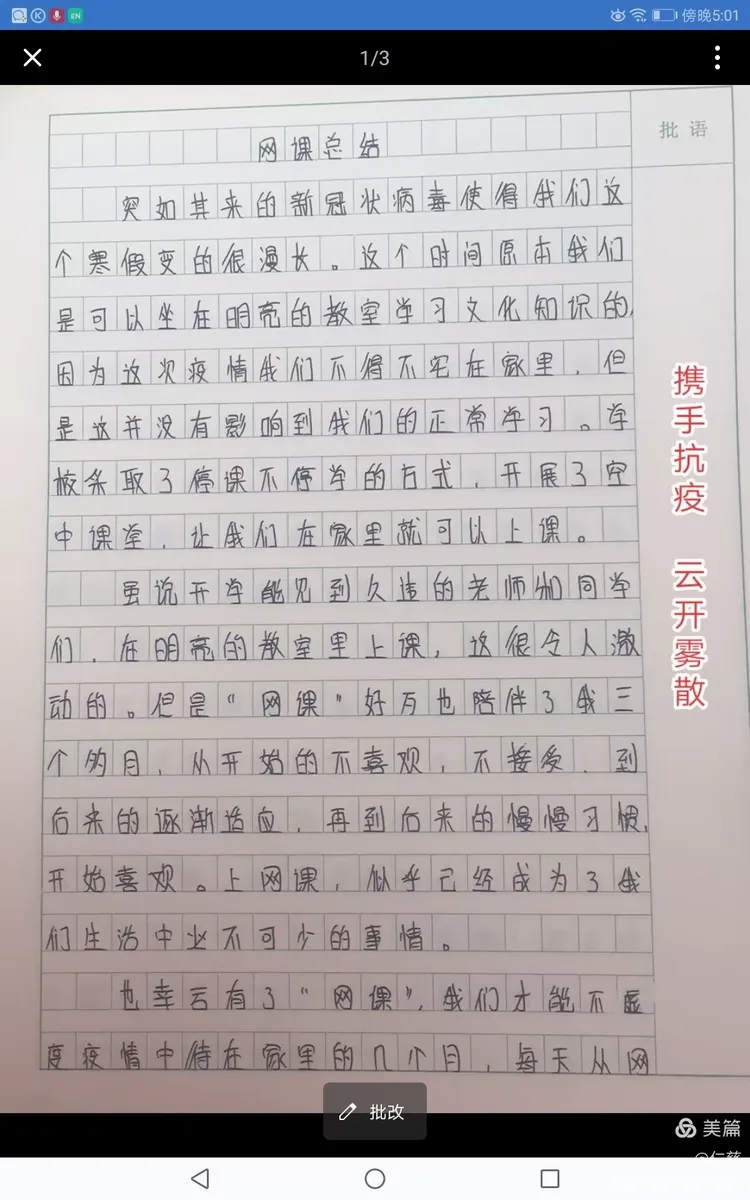 EN
傍晚5:01
1/3
批语
网课总结
突如其来的新冠状病毒使得我们这
个寒假变的很漫长。这个时间原本我们
是可以坐在明亮的教室学习文化知识的,
因为这次疫情我们不得不宅在家里,但
是这并没有影响到我们的正常学习。学
校采取了停课不停学的方式,开展了空
中课堂,让我们在家里就可以上课。
虽说开学能见到久违的老师和同学
们,在明亮的教室里上课,这很令人激
动的。但是“网课”好歹也陪伴了我三
个多月,从开始的不喜欢,不接受,到
后来的逐渐适应,再到后来的慢慢习惯,
开始喜欢。上网课,似乎已经成为了我
们生活中必不可少的事情。
也幸云有了“网课”,我们才能不虚
度疫情中待在家里的几个月,每天从网
携手抗疫 云开雾散
批改
美篇